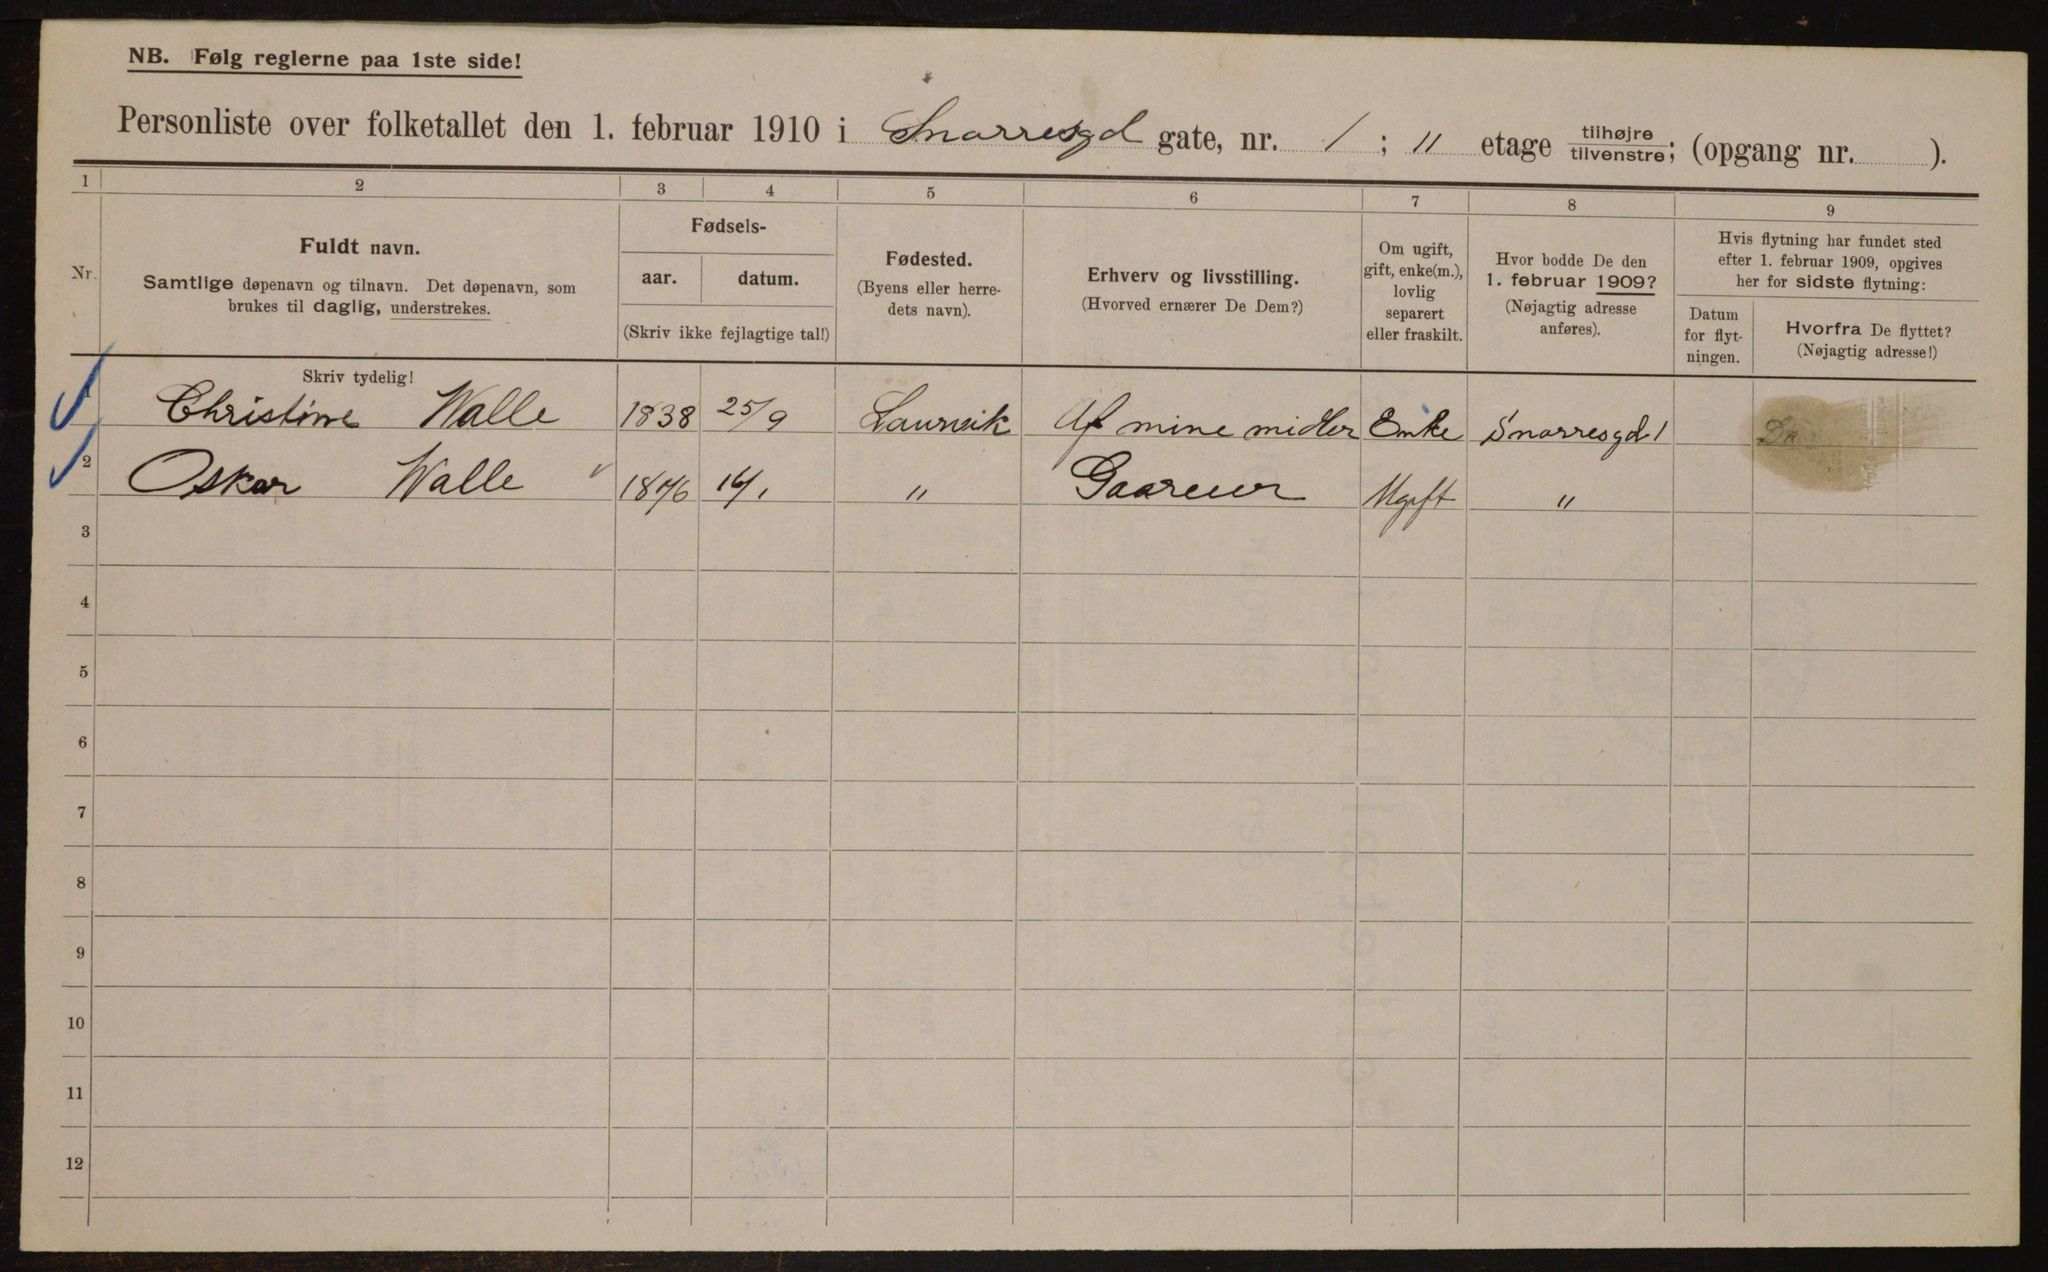 NB. Følg reglerne paa 1ste side!
Personliste over folketallet den 1. februar 1910 i Snorresgd gate, nr. 1; 11 etage tilhøjre/tilvenstre; (opgang nr. ).
1 2 3 4 5 6 7 8 9
Nr.
Fuldt navn.
Samtlige døpenavn og tilnavn. Det døpenavn, som
brukes til daglig, understrekes.
Fødsels-
aar. datum.
(Skriv ikke fejlagtige tal!)
Fødested.
(Byens eller herre-
dets navn).
Erhverv og livsstilling.
(Hvorved ernærer De Dem?)
Om ugift,
gift, enke(m.),
lovlig
separert
eller fraskilt.
Hvor bodde De den
1. februar 1909?
(Nøjagtig adresse
anføres).
Hvis flytning har fundet sted
efter 1. februar 1909, opgives
her for sidste flytning:
Datum
for flyt-
ningen.
Hvorfra De flyttet?
(Nøjagtig adresse!)
Skriv tydelig!
Christine Walle 1838 25/9 Laurvik Af mine midler Enke Snorresgd 1
2 Oskar Walle 1876 14/1 " Ugift "
3
4
5
6
7
8
9
10
11
12